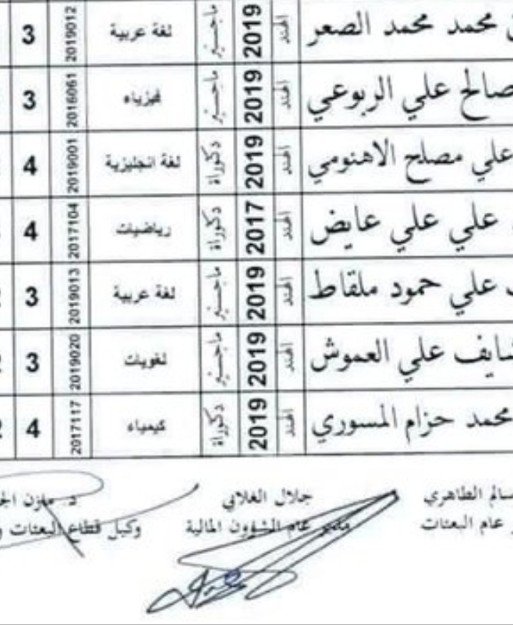 محمد محمد الصعر الهند 2019 ماجستير لغة عربية 2019012 3
صالح علي الربوعي الهند 2019 ماجستير فيزياء 2016061 3
علي مصلح الاهنومي الهند 2019 دكتوراة لغة انجليزية 2019001 4
علي علي عايض الهند 2017 دكتوراة رياضيات 2017104 4
علي حمود ملقاط الهند 2019 ماجستير لغة عربية 2019013 3
شايف علي العموش الهند 2019 ماجستير لغويات 2019020 3
محمد حزام المسوري الهند 2019 دكتوراة كيمياء 2017117 4
سالم الطاهري جلال الغلابي د. مازن
عام البعثات مدير عام الشؤون المالية وكيل قطاع البعثات